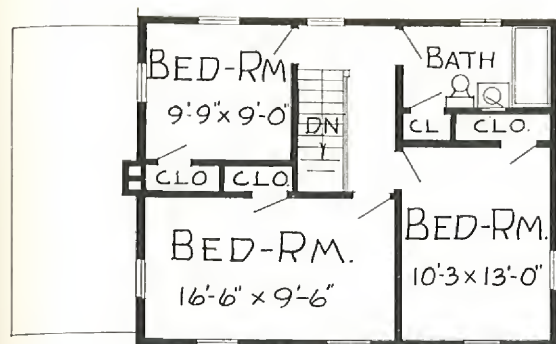 BED-RM
9'-9" x 9'-0"
BATH
DN
CL
CLO.
CLO
CLO.
BED-RM.
16'-6" x 9'-6"
BED-RM.
10'-3 x 13'-0"